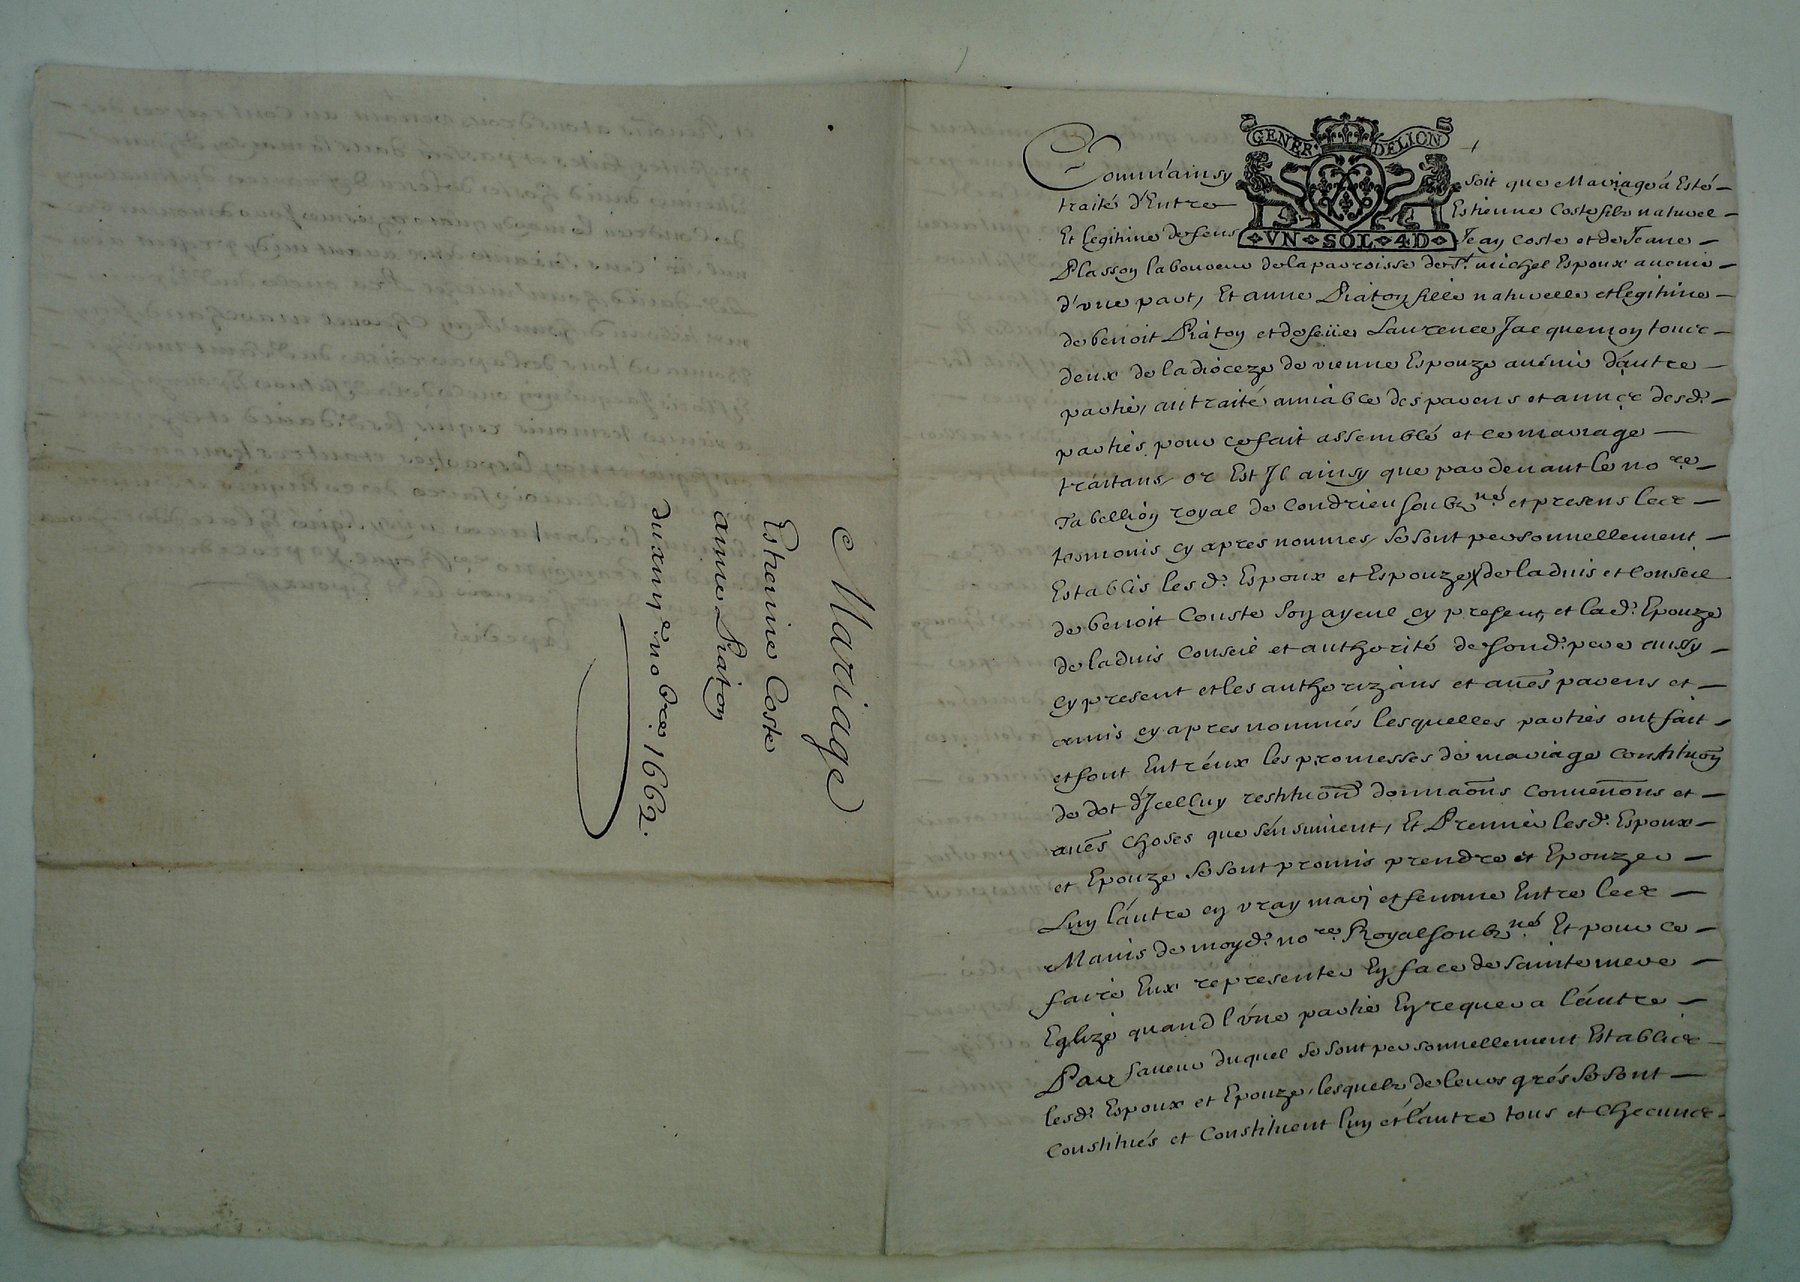 Mariage
Estienne Coste
anne Piaton
du xiiij.e no.bre 1662.
GENER. DELION
VN SOL 4D
Comm'ainsy soit que Mariage á Esté
traité d'Entre Estienne Coste filz naturel
Et legitime de feus Jean Coste et de Jeane
Plasson laboureur de la parroisse de St. michel Espoux auenir
d'vne part, Et anne Piaton fille naturelle et legitime
de benoit Piaton et de feüe Laurence Jacquemon tous
deux de la dioceze de vienne Espouze auenir d'autre
partie, au traité amiable des parens et amis desd.
parties pour ce fait assemblé et ce mariage
traitans, or Est Il ainsy que par deuant le no.re
Tabellion royal de Condrieu soubz.né et presens les
tesmoins cy apres nommes, se sont personnellement
Establis lesd. Espoux et Espouze de laduis et Conseil
de benoit Couste son ayeul cy present, et lad. Epouze
de laduis Conseil et authorité de sond. pere aussy
cy present et les authorizans et aues parens et
amis cy apres nommés lesquelles parties ont fait
et font Entréux les promesses de mariage Constituon
de dot d'Icelluy restituon donnaons Conuenons et
aues Choses que sénsuiuent, Et Premier lesd. Espoux
et Epouze se sont promis prendre et Epouzer
Lun láutre en vray mary et femme Entre les
Mains de moyd. no.re Royal soubz.né Et pour ce
faire Eux representer En face de sainte mere
Eglize quand l'úne partie En requerra láutre
Par faueur duquel se sont personnellement Establis
lesd. Espoux et Epouze, lesquelz de leurs grés se sont
Constitués et Constituent lun et láutre tous et Checuns